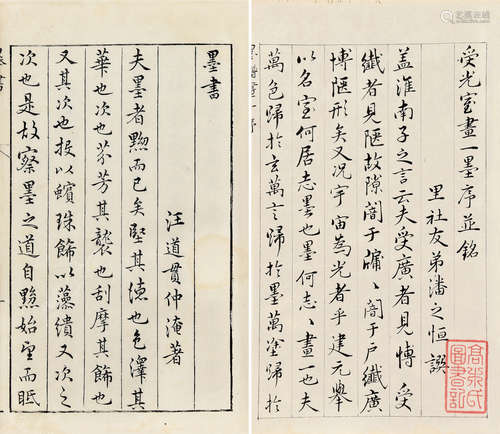 受光室畫一墨序並銘
里社友弟潘之恒譔
蓋淮南子之言云夫受廣者見愽受
纖者見陋故隙闇于牖〻闇于戶纖廣
博陋形矣又況宇宙為光者乎建元舉
以名室何居志墨也墨何志〻畫一也夫
萬色歸於玄萬言歸於墨萬塗歸於
氏圖書記
墨書
汪道貫仲淹著
夫墨者黝而已矣堅其德也色澤其
華也次也芬芳其襲也刮摩其飾也
又其次也投以蠙珠飾以藻繢又次之
次也是故察墨之道自黝始望而眡